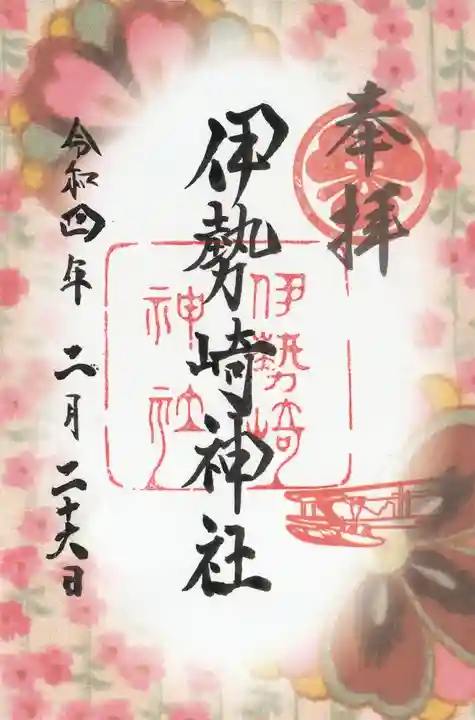 奉拝
伊勢崎神社
伊勢崎
神社
令和四年二月二十六日